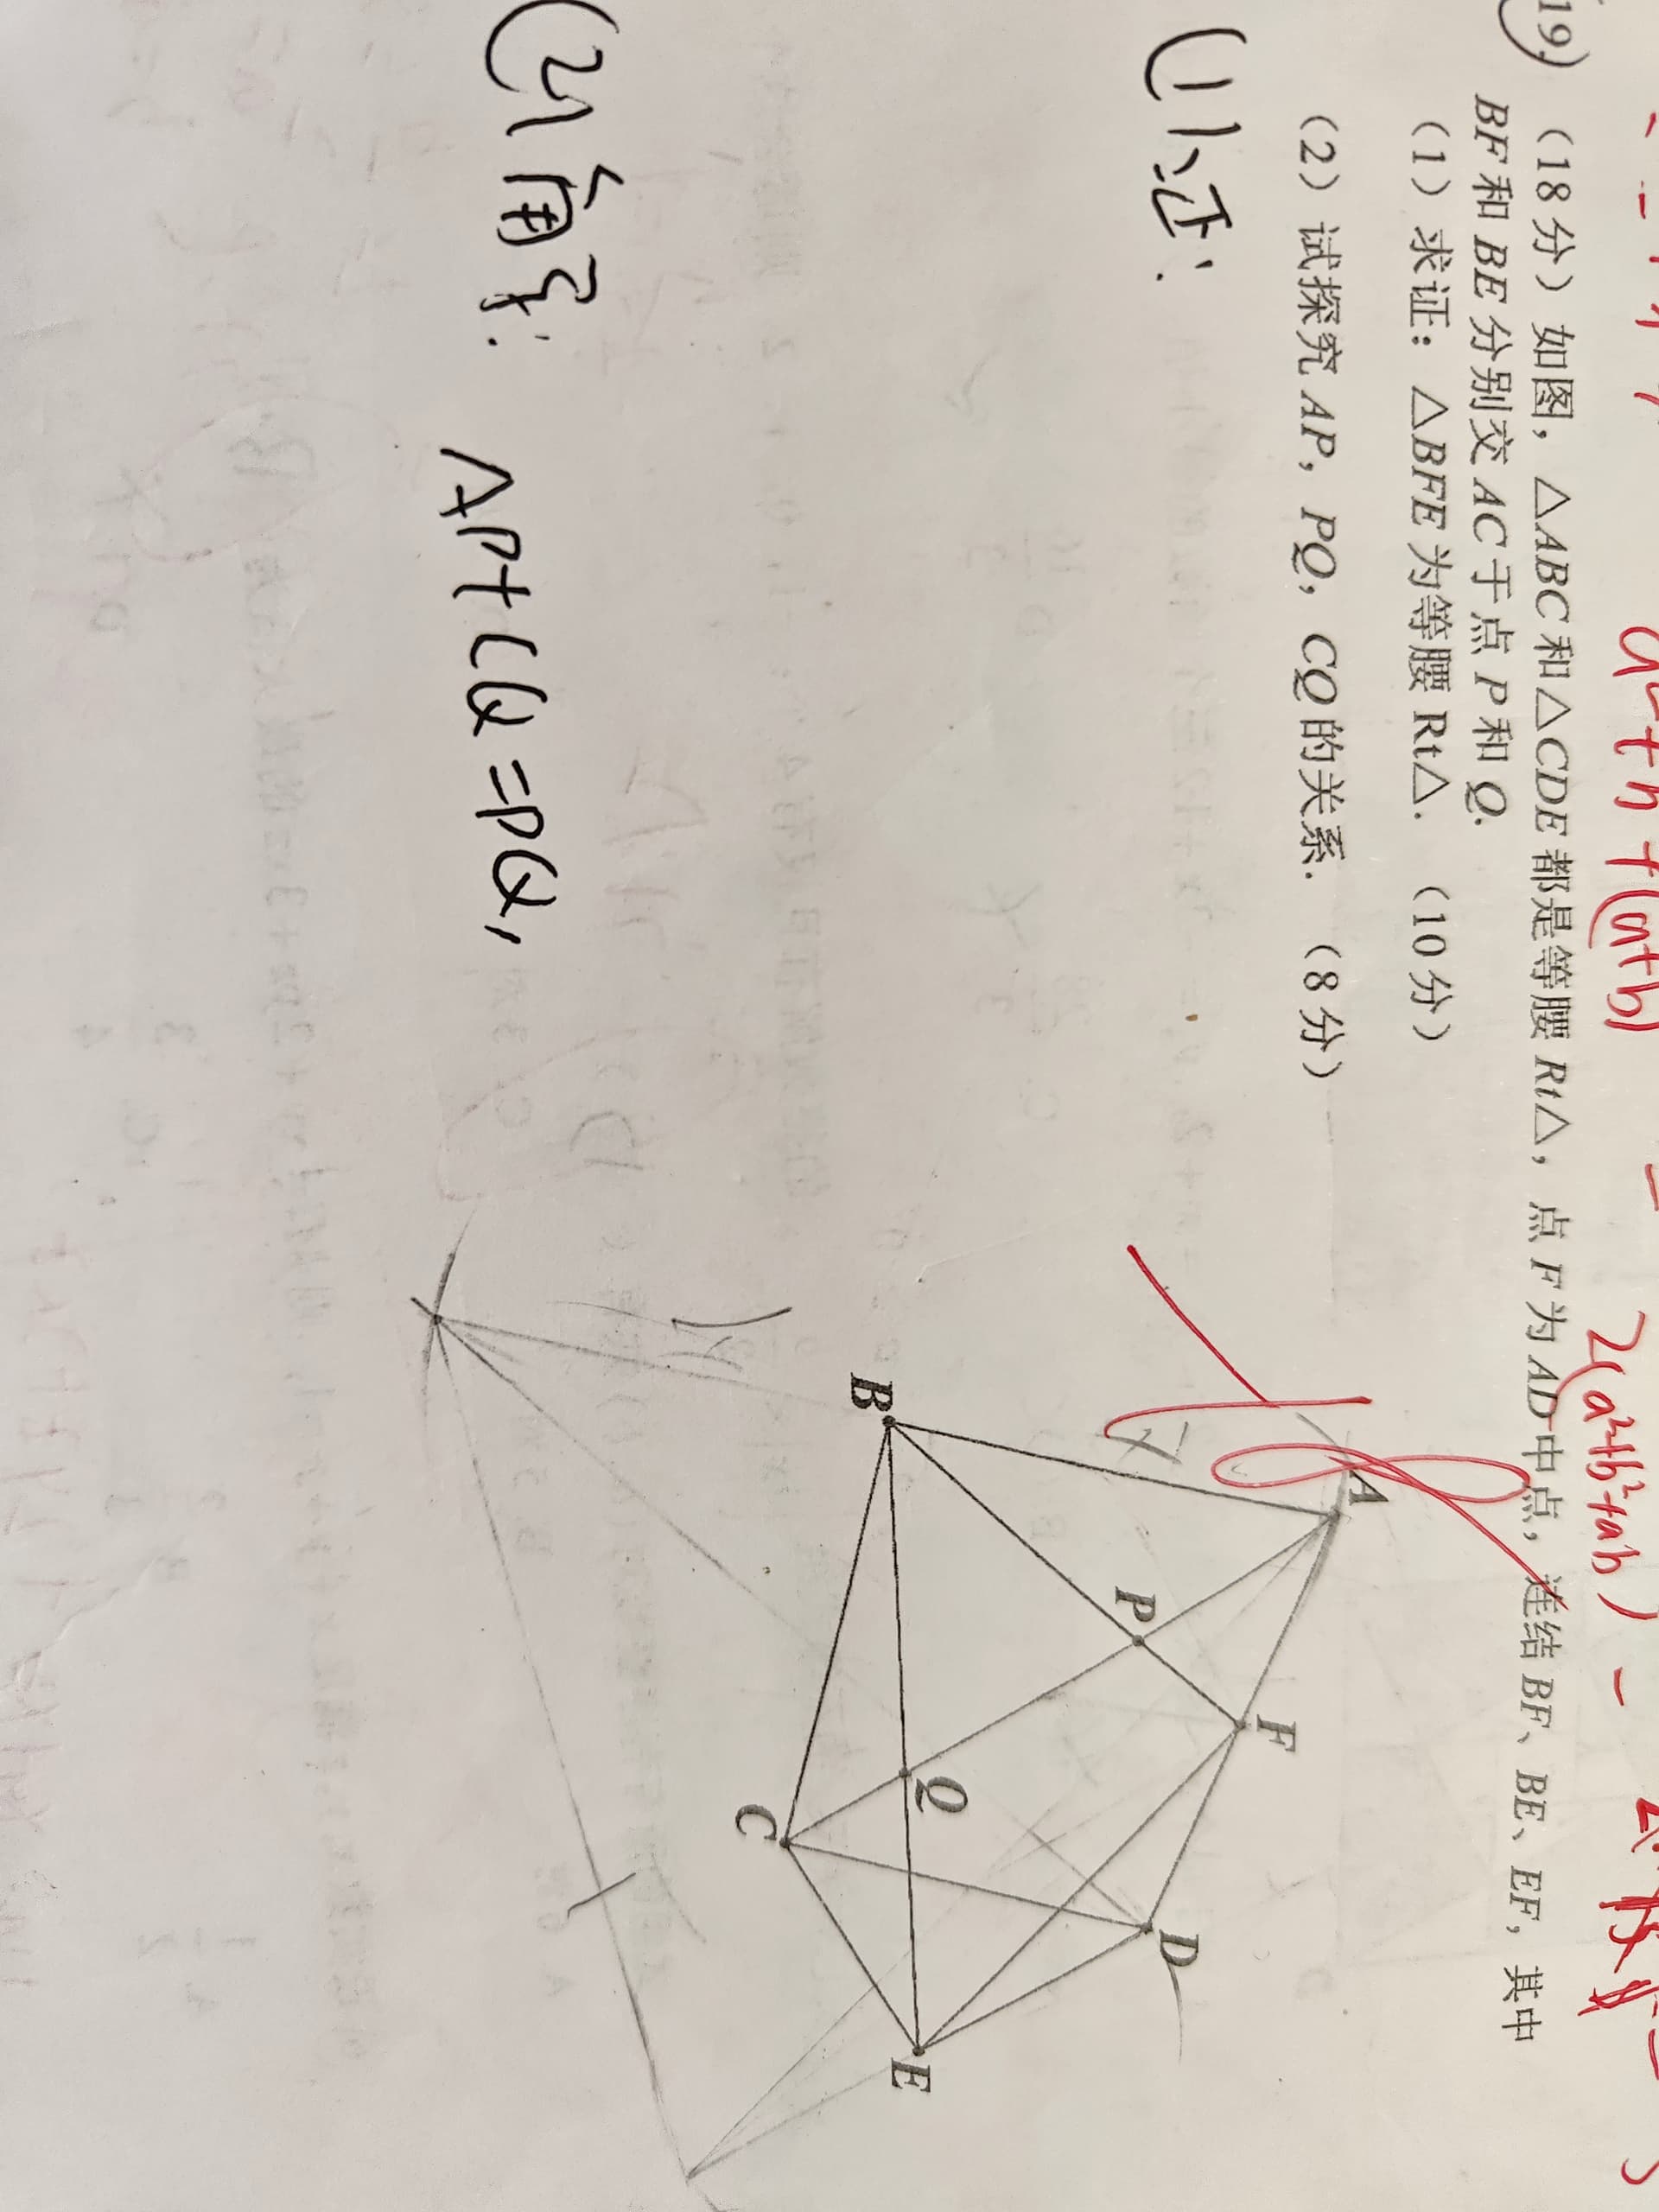 2(a²+b²+ab)
19. (18分) 如图，△ABC和△CDE都是等腰Rt△，点F为AD中点，连结BF、BE、EF，其中
BF和BE分别交AC于点P和Q.
(1) 求证：△BFE为等腰Rt△. (10分)
(2) 试探究AP，PQ，CQ的关系. (8分)
(1)、证:
A
B
P
F
Q
D
C
E
(2)
AP+CQ=PQ,